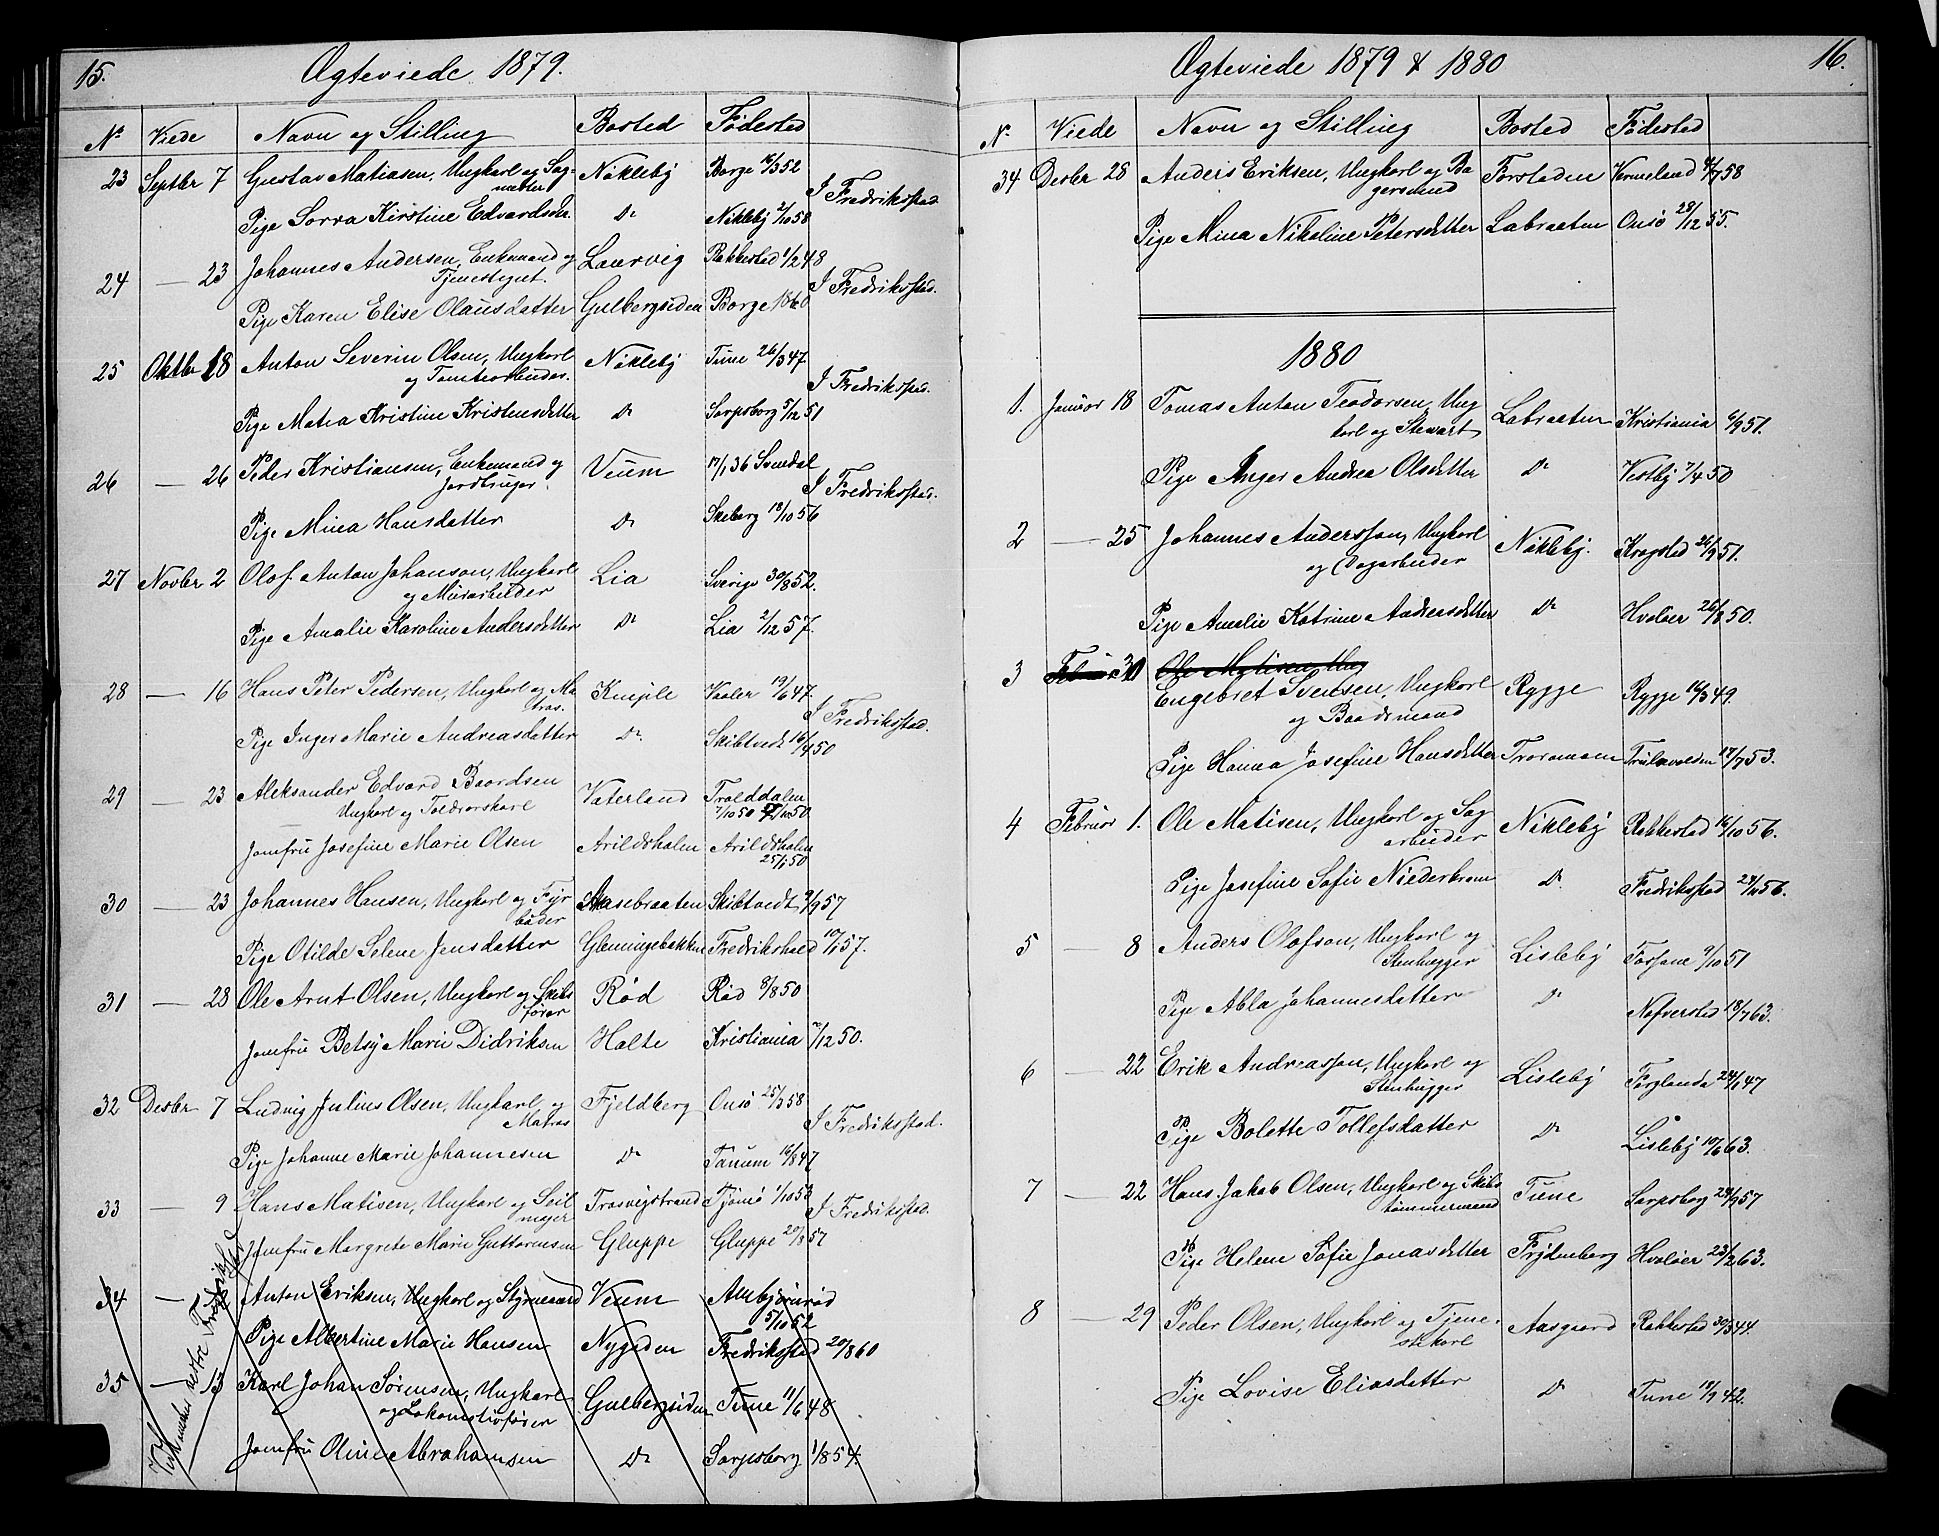 15.
Ægteviede 1879.
No Viede Navn og Stilling Bosted Fødested
23 Septbr 7 Gustav Matiasen, Ungkarl og Sag- Niklebÿ Borge 16/3 52 I Fredriksstad
mester
Pige Lovra Kirstine Edvardsdtr. Do Niklebÿ 2/10 58
24 — 23 Johannes Andersen, Enkemand og Laurvig Rakkestad 1/2 48 I Fredriksstad.
Tjenestegut.
Pige Karen Elise Olausdatter Gulbergsiden Borge 1860
25 Oktbr 18 Anton Severin Olsen, Ungkarl Niklebÿ Tune 26/3 47 I Fredriksstad.
og Tomtearbeider.
Pige Matea Kristine Kristensdatter Do Sarpsborg 5/12 51
26 — 26 Peder Kristiansen, Enkemand og Veum 17/1 36 Svendal I Fredriksstad.
Jordbruger.
Pige Mina Hansdatter Do Skeberg 18/10 56
27 Novbr 2 Olof Anton Johanson, Ungkarl Lia Sverige 30/8 52.
og Murarbeider
Pige Amalie Karoline Andersdatter Do Lia 2/12 57.
28 — 16 Hans Peter Pedersen, Ungkarl og Ma Kniple Vaaler 19/6 47. I Fredriksstad.
tros.
Pige Inger Marie Andreasdatter Do. Skibtvedt 16/4 50
29 — 23 Aleksander Edvard Baardsen Vaterland Trolddalen
Ungkarl og Toldrorskarl 7/10 50
Jomfru Josefine Marie Olsen Arildshalen Arildshalen
25/1 50
30 — 23 Johannes Hansen, Ungkarl og Fÿr Aasebraaten Skibtvedt 9/9 57
bøder
Pige Otilde Selene Jensdatter Glemingebakken Fredrikshald 10/1 57.
31 — 28 Ole Arnt Olsen, Ungkarl og Skibs Rød Rød 8/8 50
fører
Jomfru Betsÿ Marie Didriksen Holte Kristiania 2/12 50.
32 Desbr 7 Ludvig Julius Olsen, Ungkarl og Fjeldberg Onsø 25/3 58 I Fredriksstad.
Matros
Pige Johanne Marie Johannesen Do Tanum 16/8 47
33 — 9 Hans Matisen, Ungkarl og Seil Trosvigstrand Tjømø 1/10 53 I Fredriksstad.
mager
Jomfru Margrete Marie Guttormsen Gluppe Gluppe 20/8 57
34 — Anton Eriksen, Ungkarl og Styrmand Veum Ambjørnrød
5/10 52
Pige Albertine Marie Hansen Nygaden Fredrikstad 20/8 60
35 — 13 Karl Johan Sørensen, Ungkarl Gulbergsiden Tune 11/6 48
og Lokomotivfører
Jomfru Oline Abrahamsen Do Sarpsborg 1/8 54.
vestre Fredrikstad
16.
Ægteviede 1879 & 1880
No. Viede Navn og Stilling Bosted Fødested
34 Desbr 28 Anders Eriksen, Ungkarl og Ba Forstaden Vermeland 4/7 58
gersvend
Pige Mina Nikoline Petersdatter Labraaten Onsø 28/12 55.
1880
1. Januar 18 Tomas Anton Teodorsen, Ung Labraaten Kristiania 6/9 51.
karl og Stewart
Pige Inger Andrea Olsdatter Do Vestbÿ 7/4 50
2 — 25 Johannes Andersson, Ungkarl Niklebÿ. Kragstad 26/9 51.
og Dagarbeider
Pige Amalie Katrine Andersdatter Do Hvaløer 26/8 50.
3 Februar 31 Ole Matisen, Ung
Engebret Svensen, Ungkarl Rygge Rygge 16/3 49.
og Baadsmand
Pige Hanna Josefine Hansdatter Traramoen 17/7 53.
4 Februar 1. Ole Matisen, Ungkarl og Sag Niklebÿ Rakkestad 16/10 56.
arbeider
Pige Josefine Sofie Niederkrom Do. Fredriksstad 24/11 56.
5 — 8 Anders Olofson, Ungkarl og Lislebÿ Forsane 9/10 51
Stenhugger
Pige Abla Johannesdatter Do Nafverstad 18/7 63.
6 — 22 Erik Andreasson, Ungkarl og Lislebÿ Forglanda 24/1 47
Stenhugger
Pige Bolette Tollefsdatter Do Lislebÿ 10/6 63.
7 — 22 Hans Jakob Olsen, Ungkarl og Skibs Tune Sarpsborg 29/9 57
tømmermand
Pige Helene Sofie Jonasdatter Frydenberg Hvaløer 23/2 63.
8 — 29 Peder Olsen, Ungkarl og Tjene- Aasgaard Rakkestad 30/3 44.
stekarl
Pige Lovise Eliasdatter Do Tune 18/9 42.